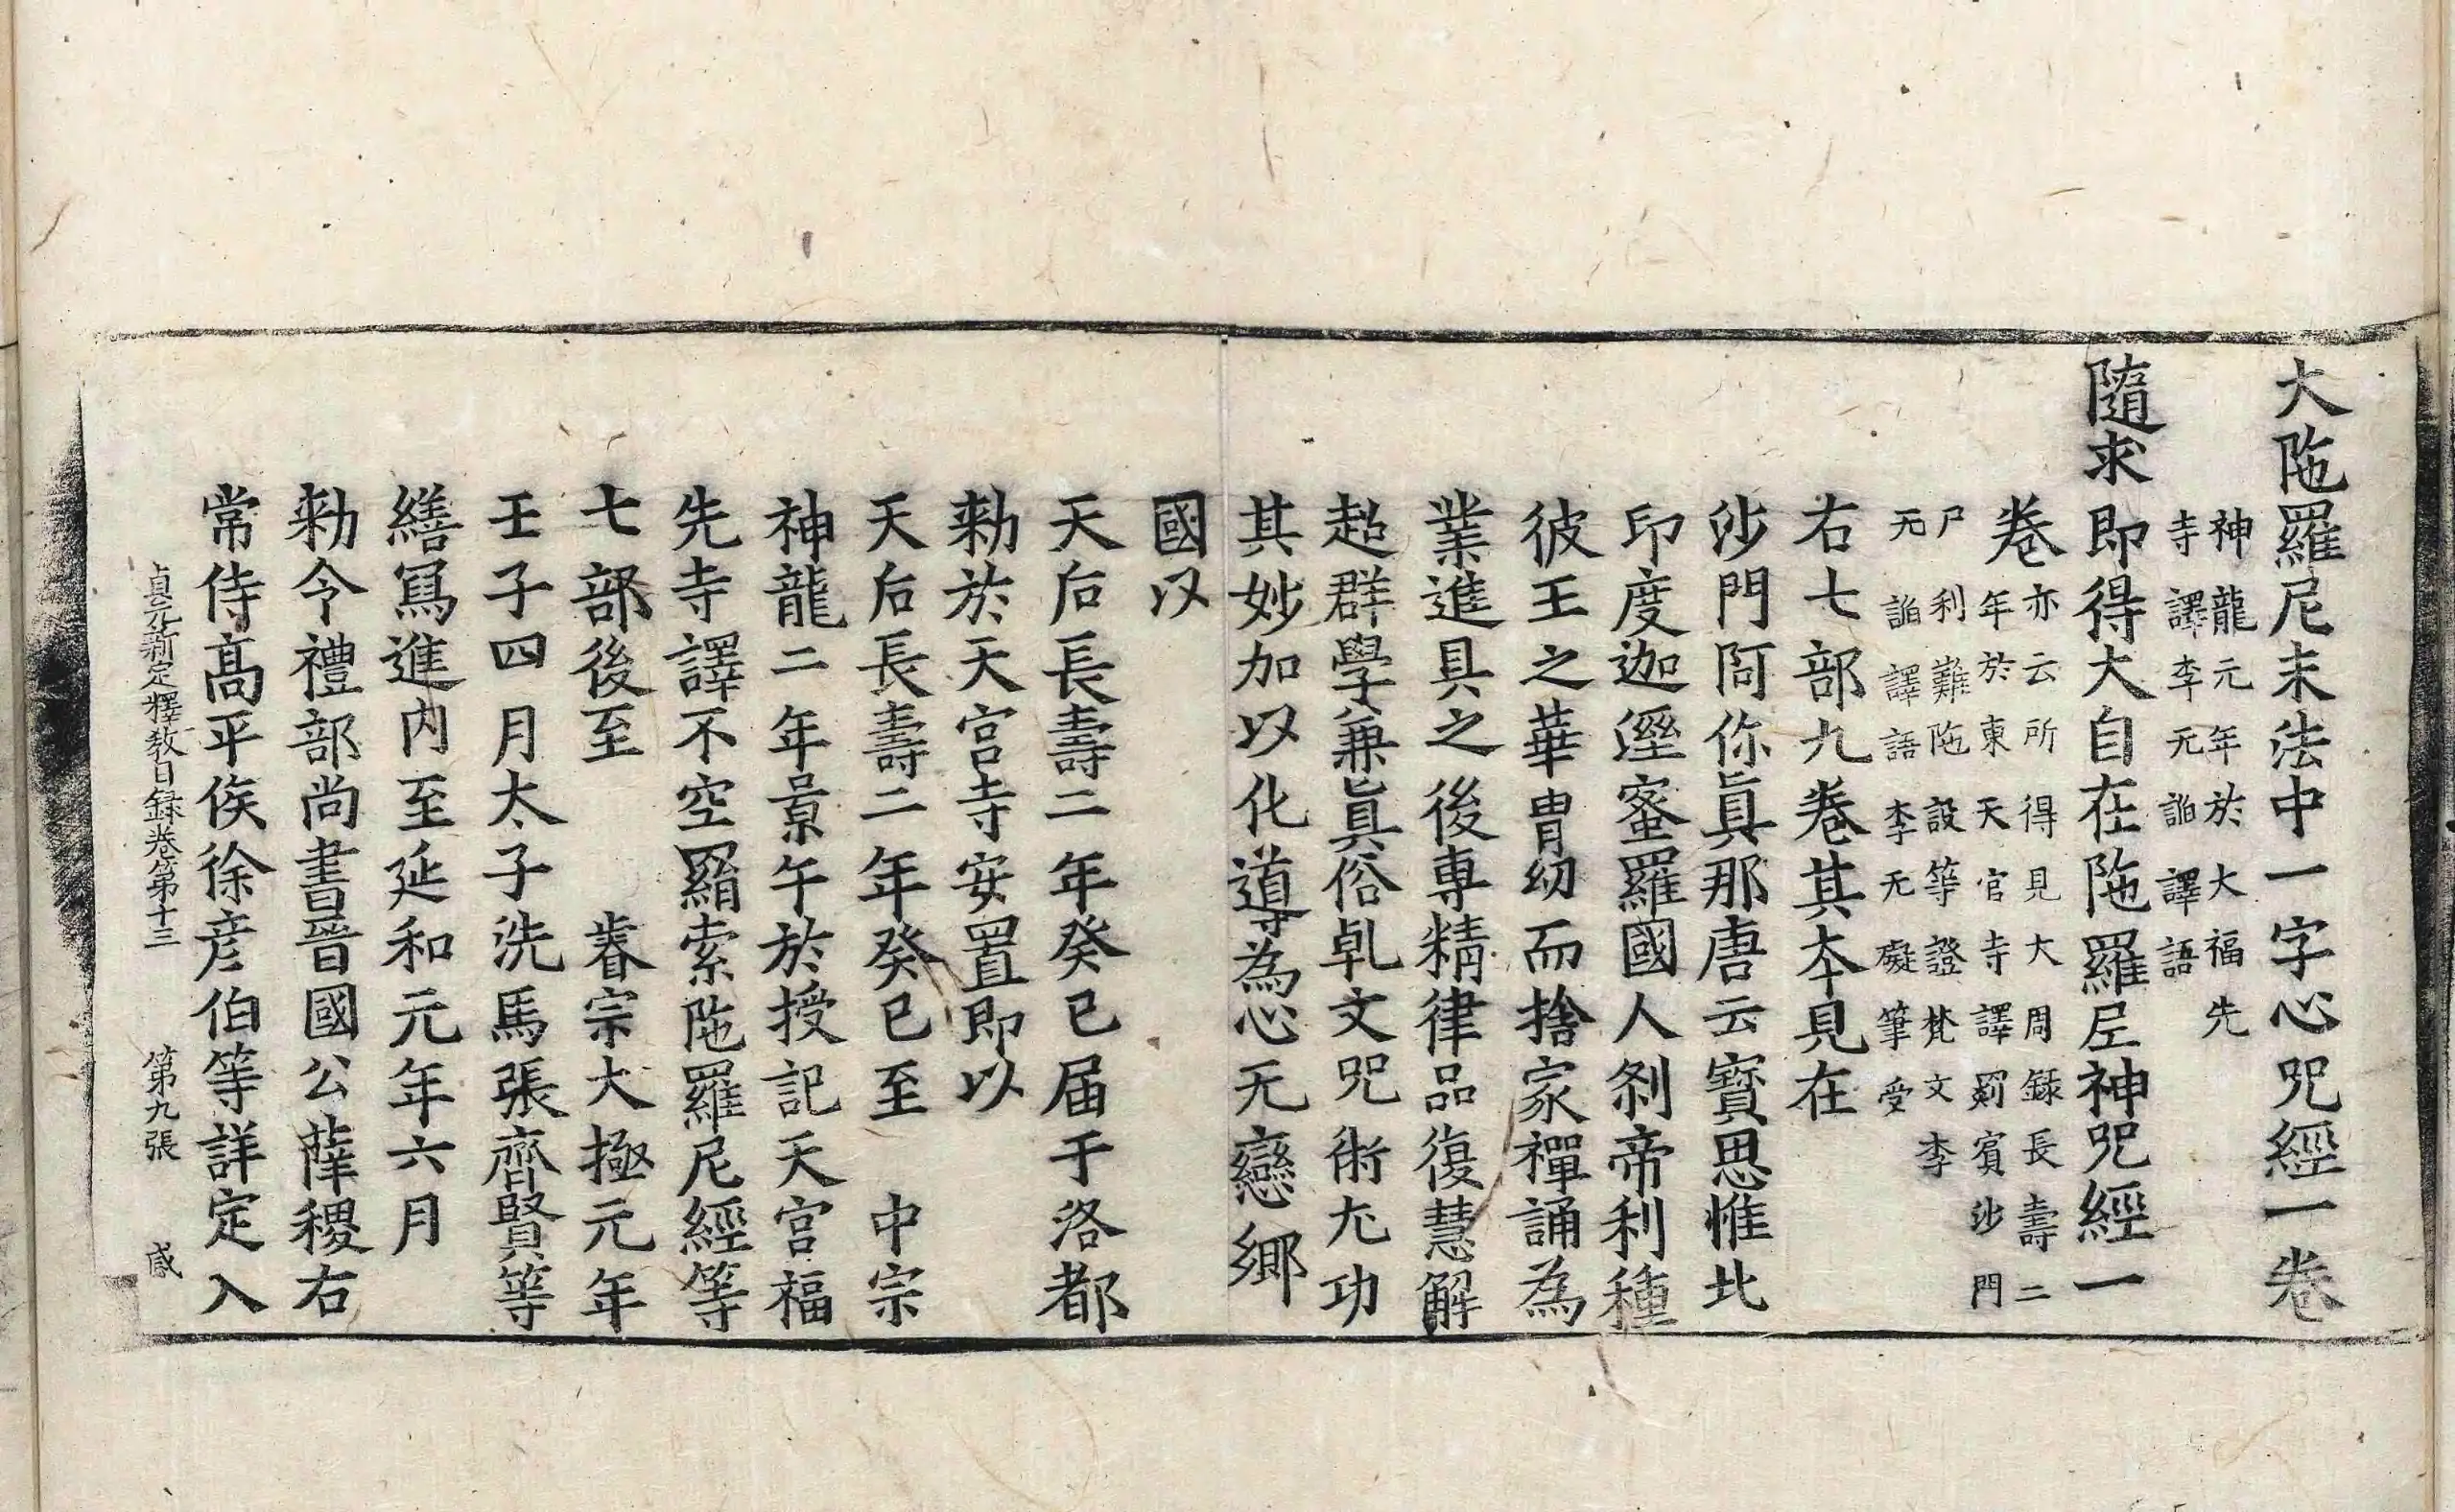 大陁羅尼末法中一字心呪經一卷
神龍元年於大福先
寺譯李无諂譯語
隨求即得大自在陁羅尼神呪經一
卷
亦云所得見大周録長壽二
年於東天宫寺譯罽賓沙門
尸利難陁設等證梵文李
无諂譯語李无礙筆受
右七部九卷其本見在
沙門阿你眞那唐云寶思惟北
印度迦逕蜜羅國人刹帝利種
彼王之華胄幼而捨家禪誦為
業進具之後專精律品復慧解
超群學兼眞俗乹文呪術尤功
其妙加以化導為心无戀鄉
國以
天后長壽二年癸巳届于洛都
勑於天宫寺安置即以
天后長壽二年癸巳至　中宗
神龍二年景午於授記天宫福
先寺譯不空羂索陁羅尼經等
七部後至　　睿宗大極元年
壬子四月太子洗馬張齊賢等
繕冩進内至延和元年六月
勑令禮部尚書晉國公薛稷右
常侍髙平侯徐彦伯等詳定入
貞元新定釋教目録卷第十三　第九張　感